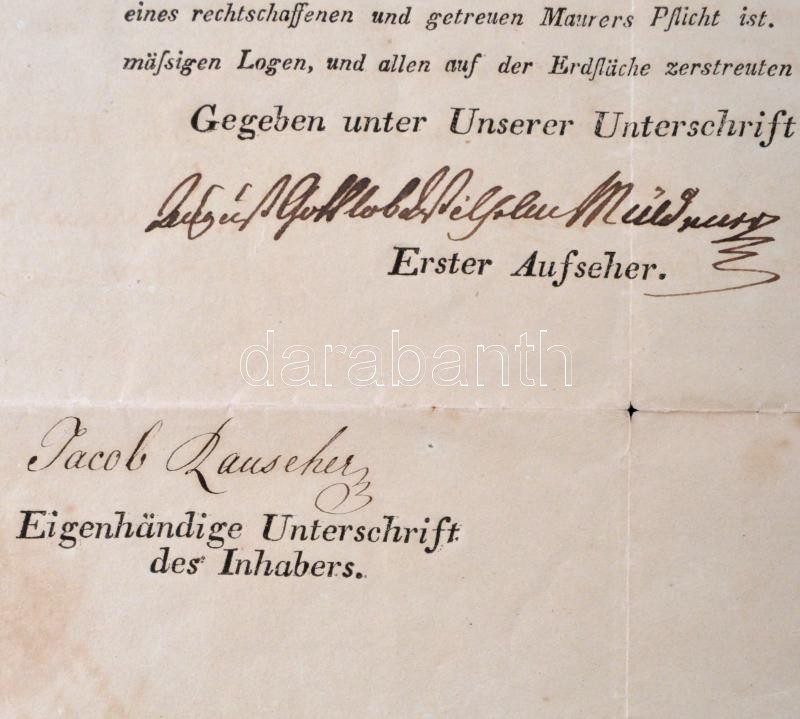 eines rechtschaffenen und getreuen Maurers Pflicht ist.
mäſsigen Logen, und allen auf der Erdfläche zerstreuten
Gegeben unter Unserer Unterschrift
August Gottlob Wilhelm
Erster Aufseher.
darabanth
Jacob Rauscher
Eigenhändige Unterschrift
des Inhabers.